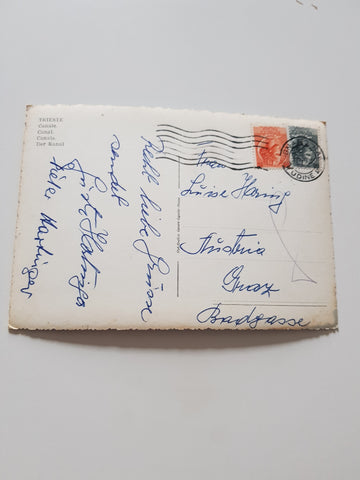 TRIESTE
Canale.
Canal.
Canale.
Der Kanal
Recht liebe Grüsse
sendet
Peter Hartinger
Frau
Luise Haring
Austria
Graz
Badgasse
UDINE